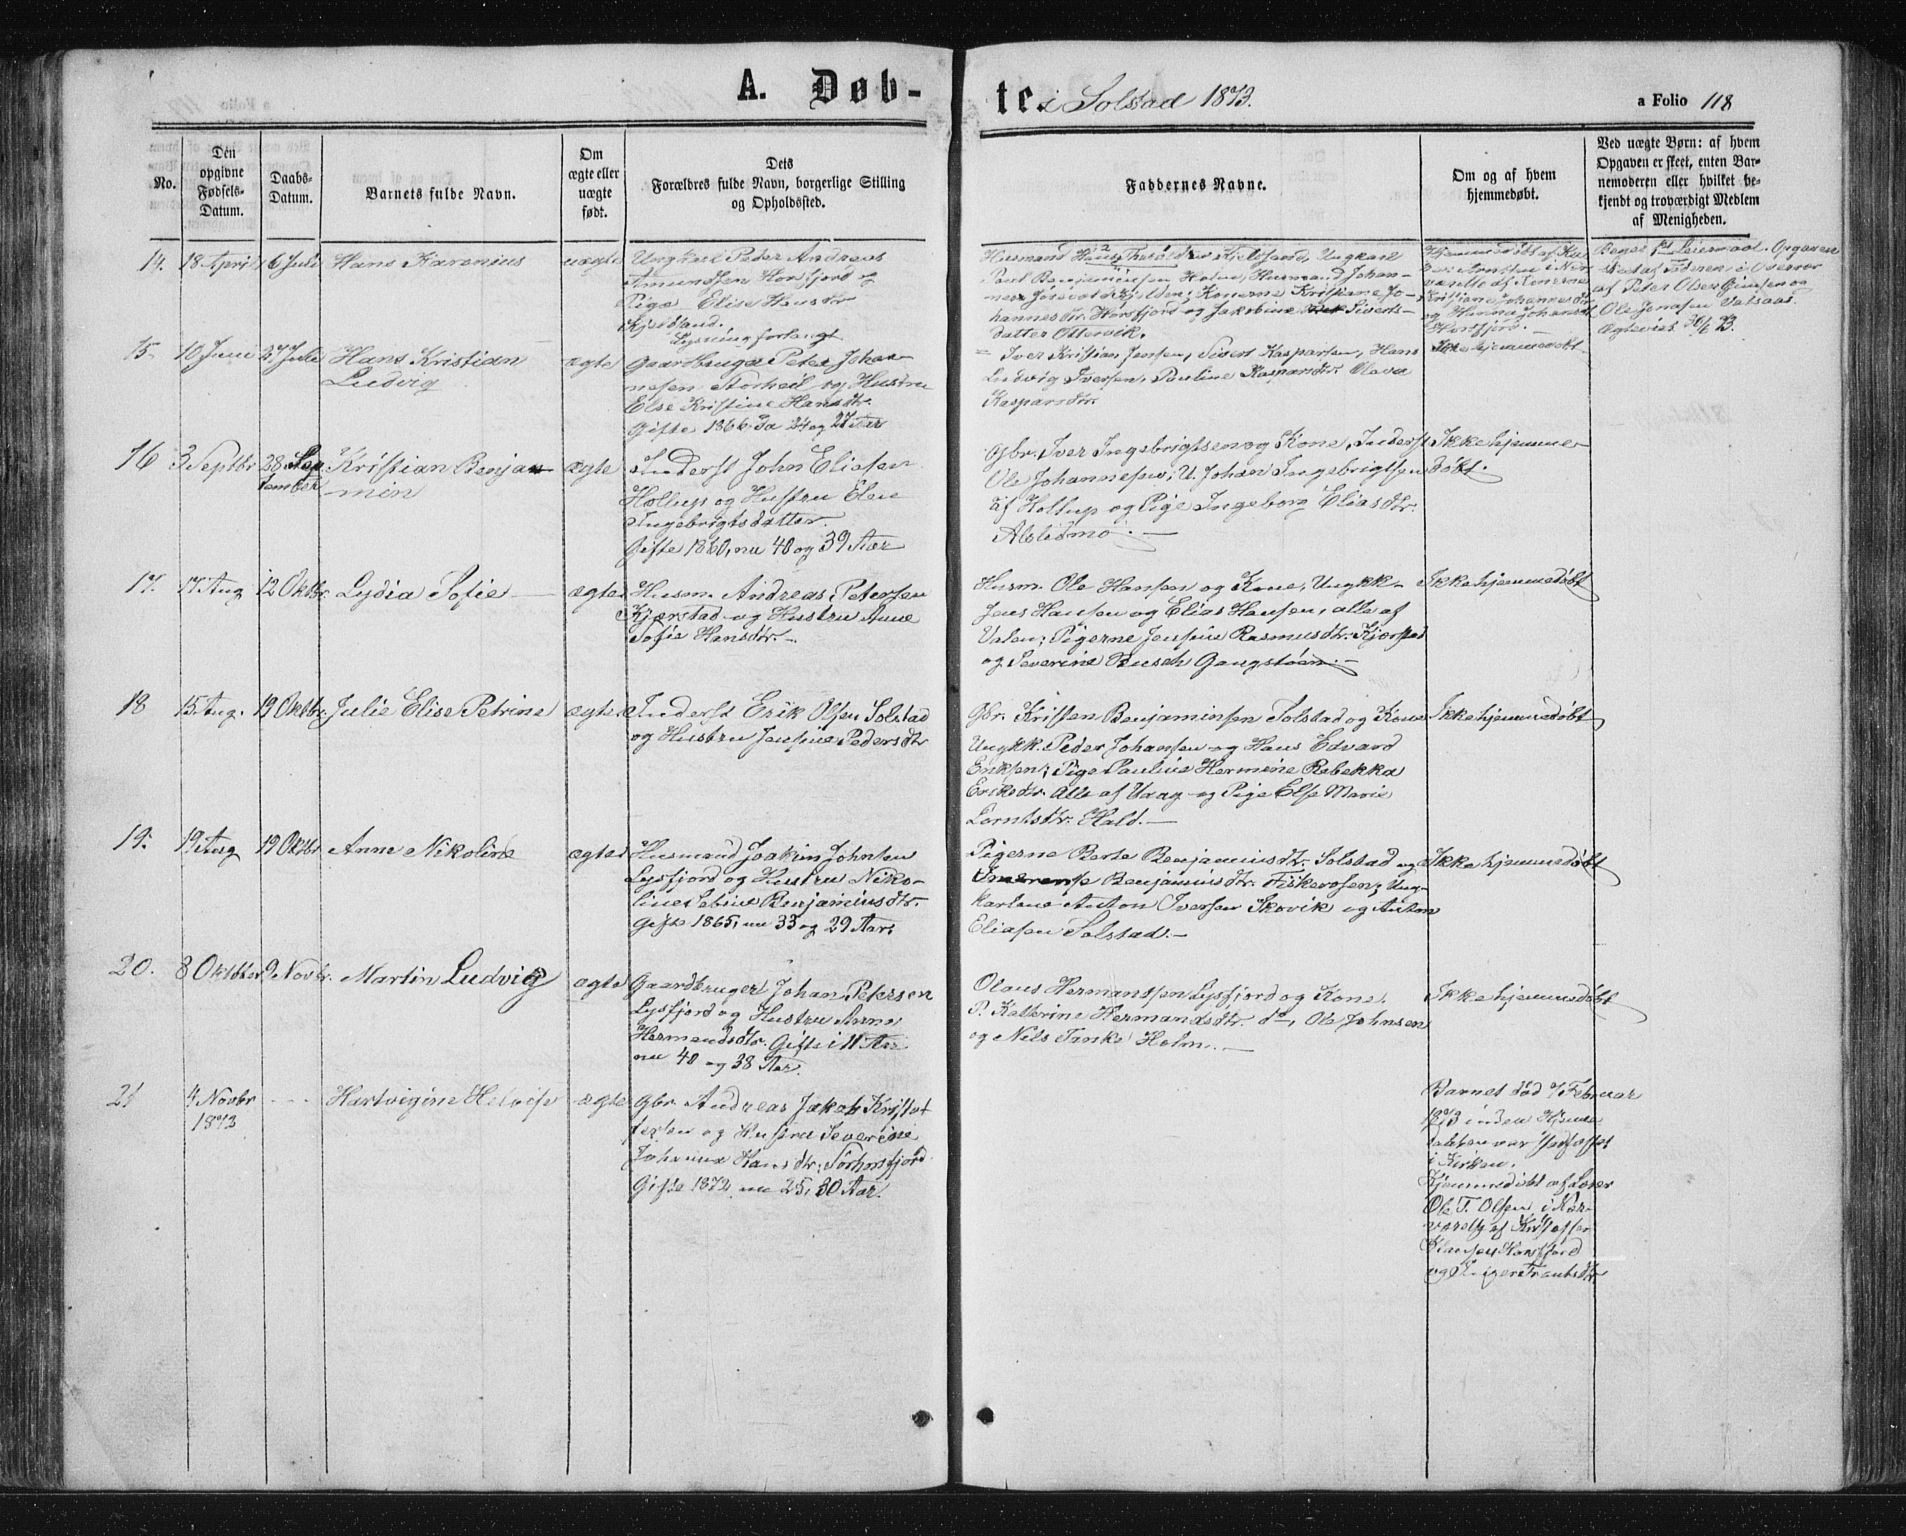 A. Døb-
te. i Solstad 1873.
a Folio 118
No.
Den opgivne Fødsels-Datum.
Daabs-Datum.
Barnets fulde Navn.
Om ægte eller uægte født.
Dets Forældres fulde Navn, borgerlige Stilling og Opholdssted.
Faddernes Navne.
Om og af hvem hjemmedøbt.
Ved uægte Børn: af hvem Opgaven er skeet, enten Barnemoderen eller hvilket bekjendt og troværdigt Medlem af Menigheden.
14. 18 April 6 Juli Hans Karenius uægte
Ungkarl Peter Andreas
Amundsen Horsfjord og
Pige Elise Hansdtr
Lysning forlangt
Husmand Hans
Paul Benjaminsen Holm, Husmand Johan-
Konerne Kristiane Jo-
hannesdtr. Horsfjord og Jakobine Siverts-
datter Ottervik.
Hjemmedøbt af
Kristiane Johannesdtr
og Hanna Johansdtr
Horsfjord.
Begges 1st Leiermaal. Opgaven
skeet af Faderen, i Overvær
af Peter Olsen og
Ole Jensen Valsaas.
15. 10 Juni 27 Juli Hans Kristian
Ludvig
ægte
Gaardbruger Peter Johan-
nesen Storheil og Hustru
Else Kristine Hansdtr.
Gifte 1866. Sa 24 og 27 Aar
Iver Kristian Jensen, Sivert Kaspersen, Hans
Ludvig Iversen, Pauline Kaspersdtr. Olava
Kaspersdtr.
Ikke hjemmedøbt
16 3 Septbr 28 Sep
tember
Kristian Benja-
min
ægte
Inderst John Eliasen
Hollup og Hustru Elen
Ingebrigtsdatter.
Gifte 1860, nu 40 og 39 Aar
Gbr. Iver Ingebrigtsen og Kone, Inderst
Ole Johannesen, U. Johan Ingebrigtsen
af Hollup og Pige Ingeborg Eliasdtr.
Alstidmo. —
Ikke hjemme-
døbt.
17. 17 Aug 12 Oktbr. Lydia Sofie — ægte
Husm. Andreas Petersen
Kjærstad og Hustru Anne
Sofie Hansdtr. —
Husm. Ole Hansen og Kone, Ungkk.
Jens Hansen og Elias Hansen, alle af
Valen; Pigerne Jensine Rasmusdtr. Kjærstad
og Severine Busch Gangstøen. —
Ikke hjemmedøbt
18 15 Aug. 19 Oktbr. Julie Elise Petrine ægte
Inderst Erik Olsen Solstad
og Hustru Jensine Pedersdtr
Gbr. Kristen Benjaminsen Solstad og Kone
Ungkk. Peder Johansen og Hans Edvard
Eriksen; Pige Pauline Hermine Rebekka
Eriksdtr. Alle af Vaag og Pige Else Marie
Lorntsdtr. Hald. —
Ikke hjemmedøbt
19. 19 Aug 19 Oktbr Anne Nikoline ægte
Husmand Joakim Johnsen
Lysfjord og Hustru Niko-
line Sebine Benjaminsdtr.
Gifte 1865, nu 33 og 29 Aar.
Pigerne Berte Benjaminsdtr. Solstad og
Benjaminsdtr. Fiskerosen; Ung-
karlene Anton Iversen Skovik og Anton
Eliasen Solstad. —
Ikke hjemmedøbt
20. 8 Oktober 9 Novbr. Martin Ludvig ægte
Gaardbruger Johan Petersen
Lysfjord og Hustru Anne
Hermandsdtr. Gifte i 11 Aar
nu 40 og 38 Aar.
Olaus Hermansen Lysfjord og Kone.
P. Katherine Hermandsdtr. do, Ole Johnsen
og Nils Tanke Holm. —
Ikke hjemmedøbt
21 4 Novbr
1872
Hartvigine Helvise ægte
Gbr. Andreas Jakob Kristof
fersen og Hustru Severine
Johanna Hansdtr. Sørhorsfjord.
Gifte 1872, nu 25, 30 Aar.
Barnet død Februar
1873 inden Hjemme
daaben var stadfæstet
i Kirken.
Hjemmedøbt af Lærer
Ole T. Olsen i Nær-
værelse af Kristoffer
Horsfjord
og